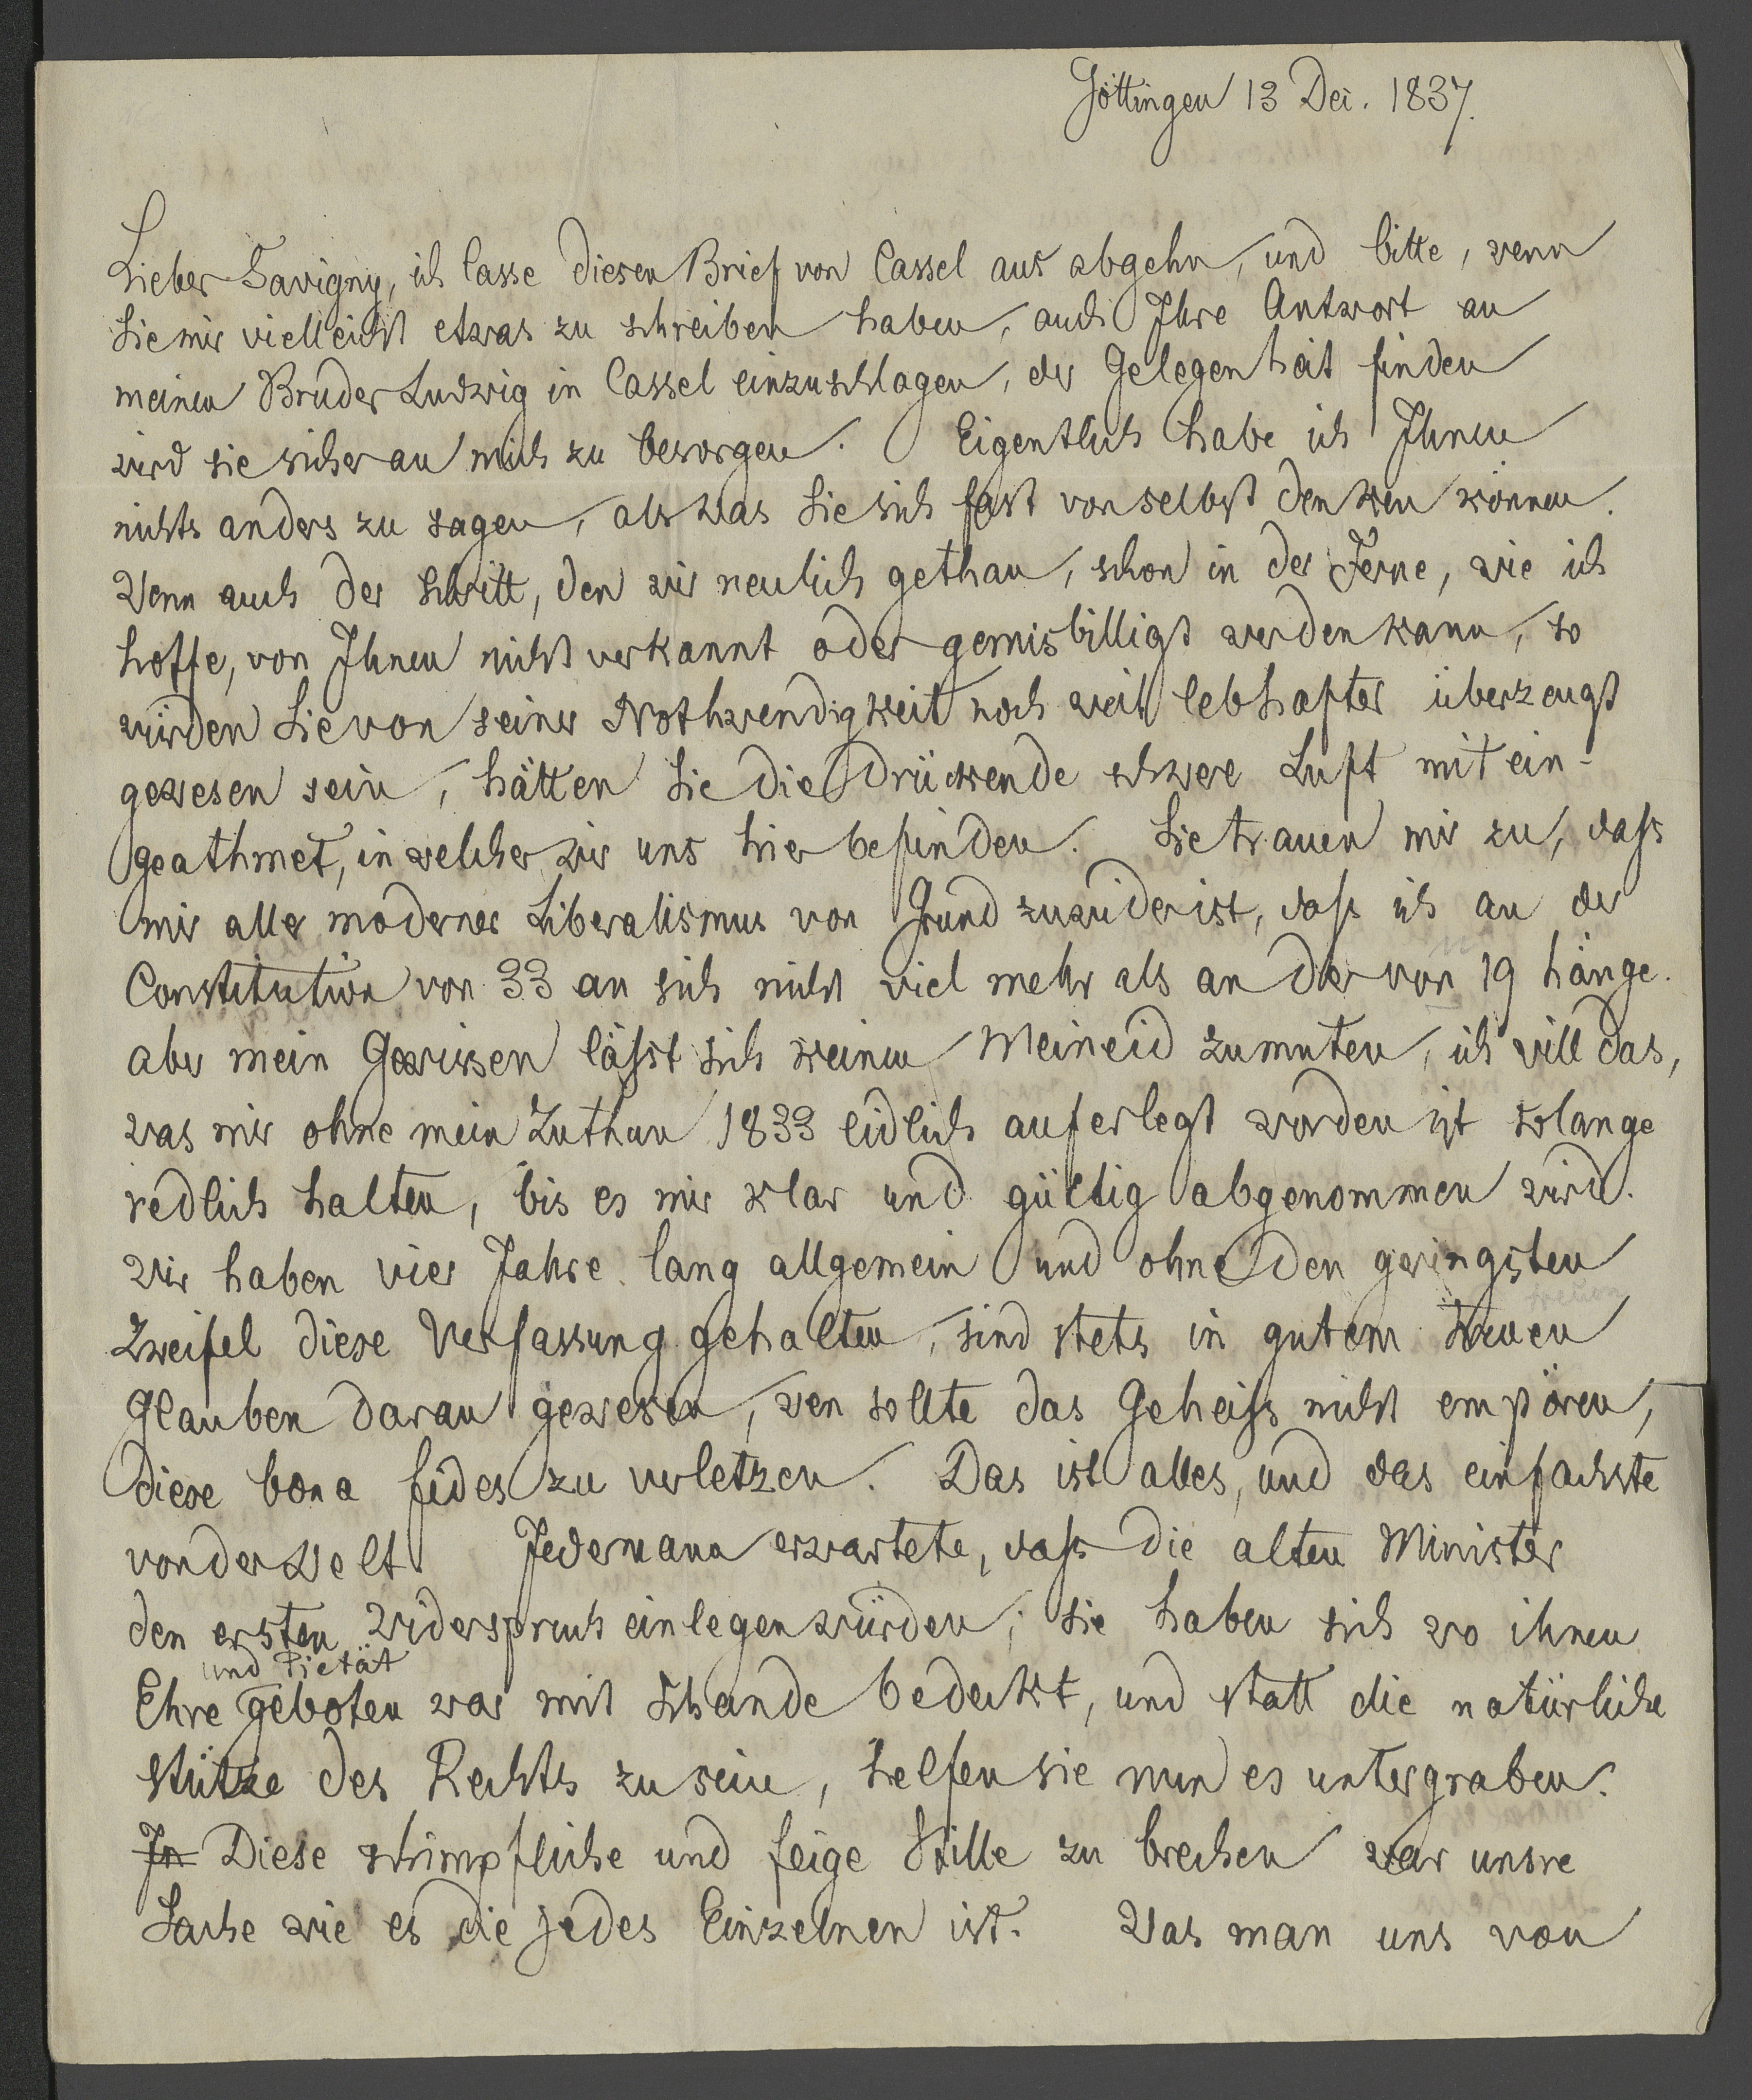 Göttingen 13 Dec. 1837.
Lieber Savigny, ich lasse diesen Brief von Cassel aus abgehn, und bitte, wenn
Sie mir vielleicht etwas zu schreiben haben, auch Ihre Antwort an
meinen Bruder Ludwig in Cassel einzuschlagen, der Gelegenheit finden
wird sie sicher an mich zu besorgen. Eigentlich habe ich Ihnen
nichts anders zu sagen, als was Sie sich fast von selbst denken können.
Wenn auch der Schritt, den wir neulich gethan, schon in der Ferne, wie ich
hoffe, von Ihnen nicht verkannt oder gemisbilligt werden kann, so
würden Sie von seiner Nothwendigkeit noch weit lebhafter überzeugt
gewesen sein, hätten Sie die drückende schwere Luft mit ein-
geathmet, in welcher wir uns hier befinden. Sie trauen mir zu, dass
mir aller moderner Liberalismus von Grund zuwider ist, dass ich an der
Constitution von 33 an sich nicht viel mehr als an der von 19 hänge.
aber mein Gewissen lässt sich keinen Meineid zumuten, ich will das,
was mir ohne mein Zuthun 1833 eidlich auferlegt worden ist solange
redlich halten, bis es mir klar und gültig abgenommen wird.
Wir haben vier Jahre lang allgemein und ohne den geringsten
treuen
Zweifel diese Verfassung gehalten, sind stets in gutem treuen
Glauben daran gewesen, wen sollte das Geheiss nicht empören,
diese bona fides zu verletzen. Das ist alles, und das einfachste
von der Welt. Jedermann erwartete, dass die alten Minister
den ersten Widerspruch einlegen würden; sie haben sich wo ihnen
und Pietät
Ehre geboten war mit Schande bedeckt, und statt die natürliche
Stütze des Rechts zu sein, helfen sie nun es untergraben.
In Diese schimpfliche und feige Stille zu brechen war unsre
Sache wie es die jedes Einzelnen ist. Was man uns von